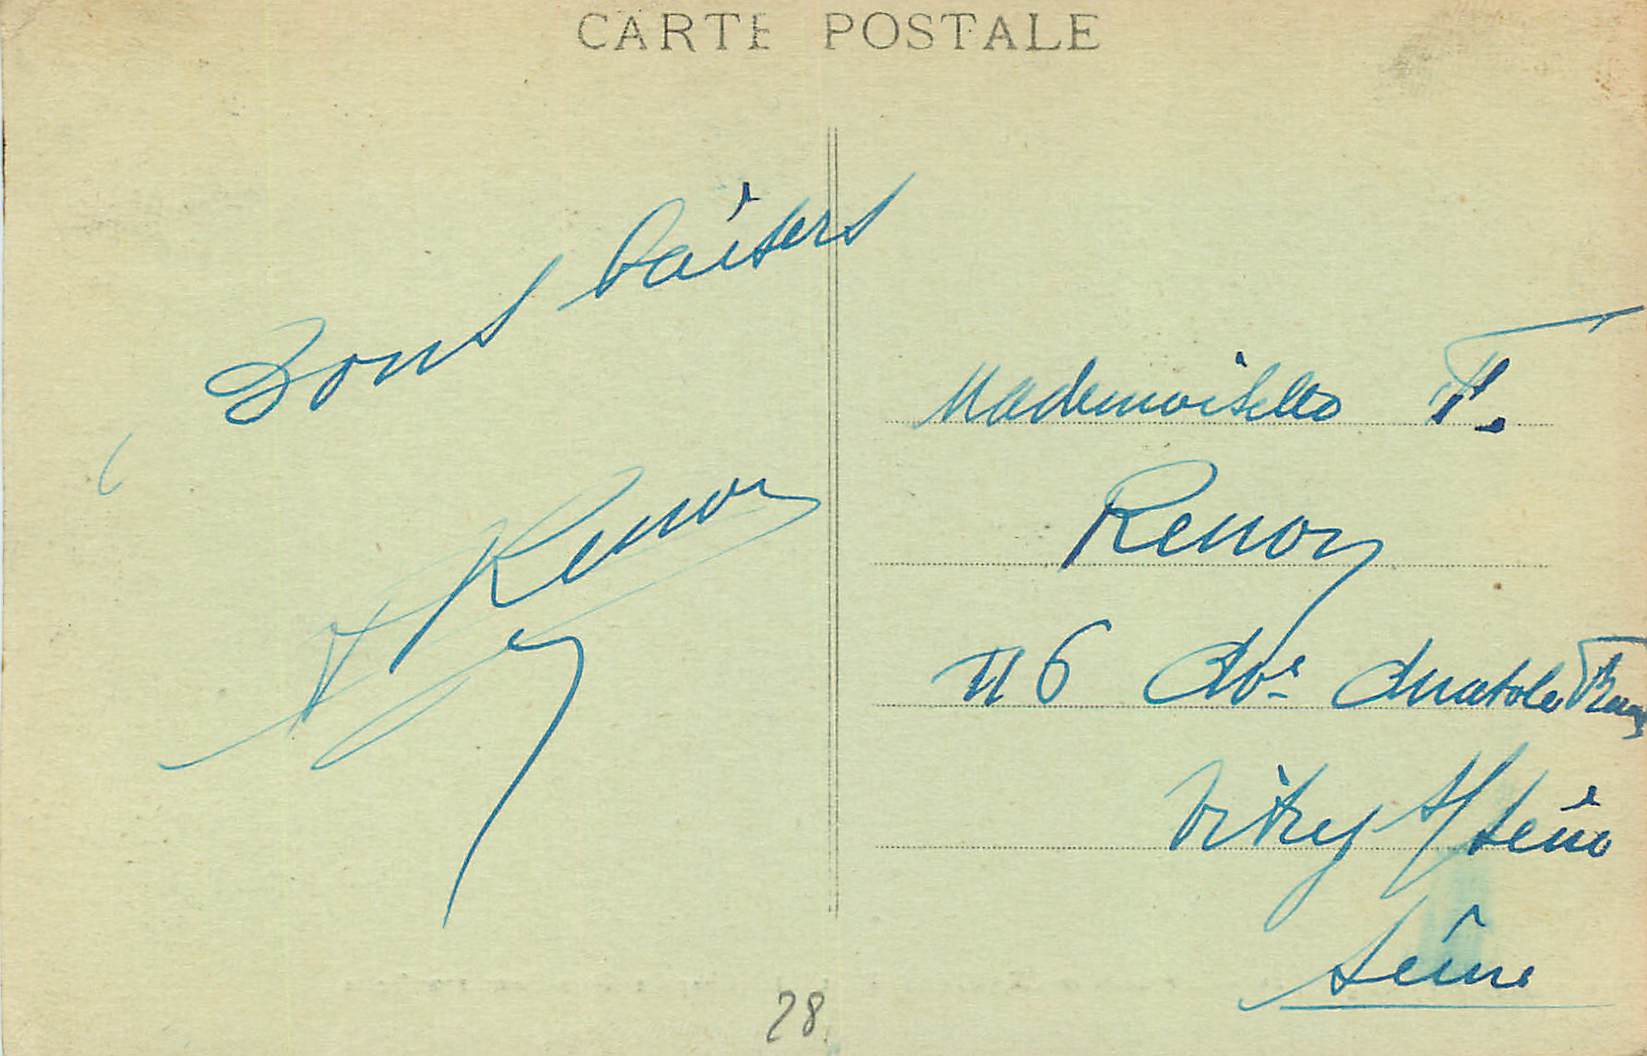 CARTE POSTALE
Bons baisers
Renoy
Mademoiselle F.
Renoy
116 Av. Anatole France
Vitry s/ Seine
Seine
28